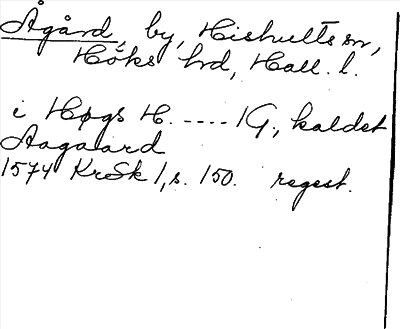 Ågård, by, Hishults sn,
Höks hd, Hall. l.
i Høgs H. ---- 1G., kaldet
Aagaard
1574 KrSk 1, s. 150. regest.